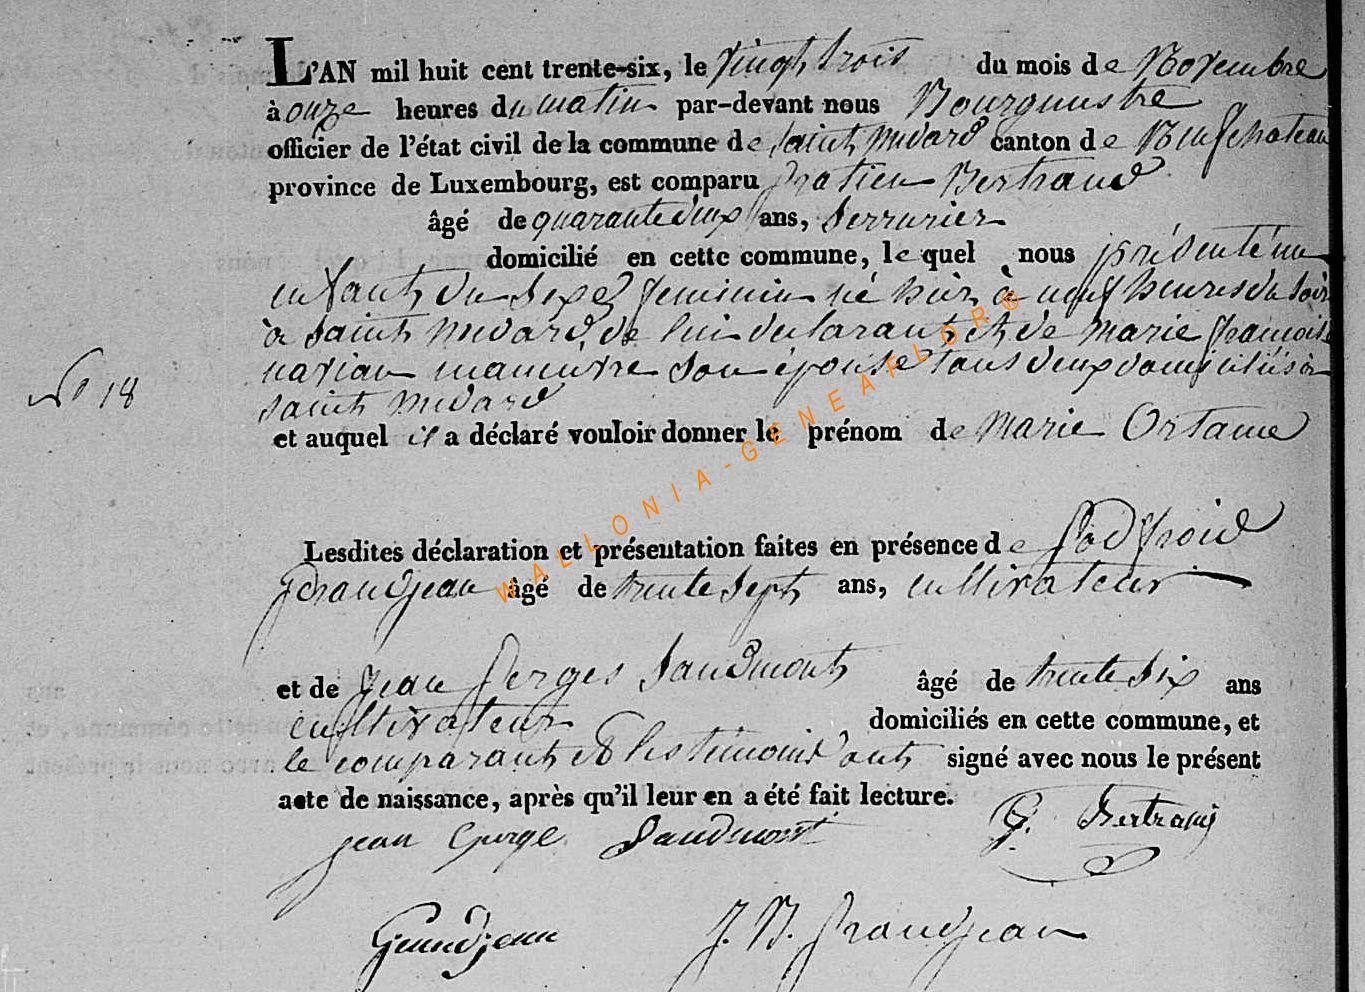 L'AN mil huit cent trente-six, le vingt trois du mois de Novembre
à onze heures du matin par-devant nous Bourgmestre
officier de l'état civil de la commune de Saint Médard canton de Neufchateau
province de Luxembourg, est comparu Gratien Bertrand
âgé de quarante deux ans, Serrurier
domicilié en cette commune, lequel nous présenté un
enfant du Sexe feminin né hier à neuf heures du soir
à Saint Médard, de lui declarant et de Marie françoise
son épouse tous deux domiciliés à
Saint Médard
N° 18
et auquel il a déclaré vouloir donner le prénom de Marie Ortance
Lesdites déclaration et présentation faites en présence de Godfroid
Grandjean âgé de trente Sept ans, cultivateur
et de Jean Gerges Saudmont âgé de trente Six ans
cultivateur domiciliés en cette commune, et
le comparant et les témoins ont signé avec nous le présent
acte de naissance, après qu'il leur en a été fait lecture.
jean Gerge Saudmont G. Bertrand
Grandjean J. B. Grandjean
WALLONIA-GENEAFLOR®